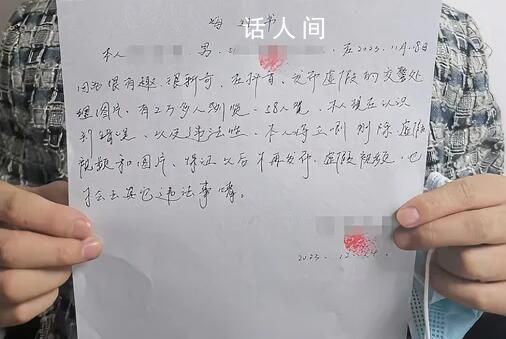 话人间
悔过书
本人 男, 在2023.11月8日
因为很有趣、很新奇、在抖音、发布虚假的交警处
理图片,有2万多人浏览、 人赞,本人现在认识
到错误、以及违法性、本人将立刻删除虚假
视频和图片、保证以后不再发布虚假视频,也
不会去其它违法事情。
2023.12.